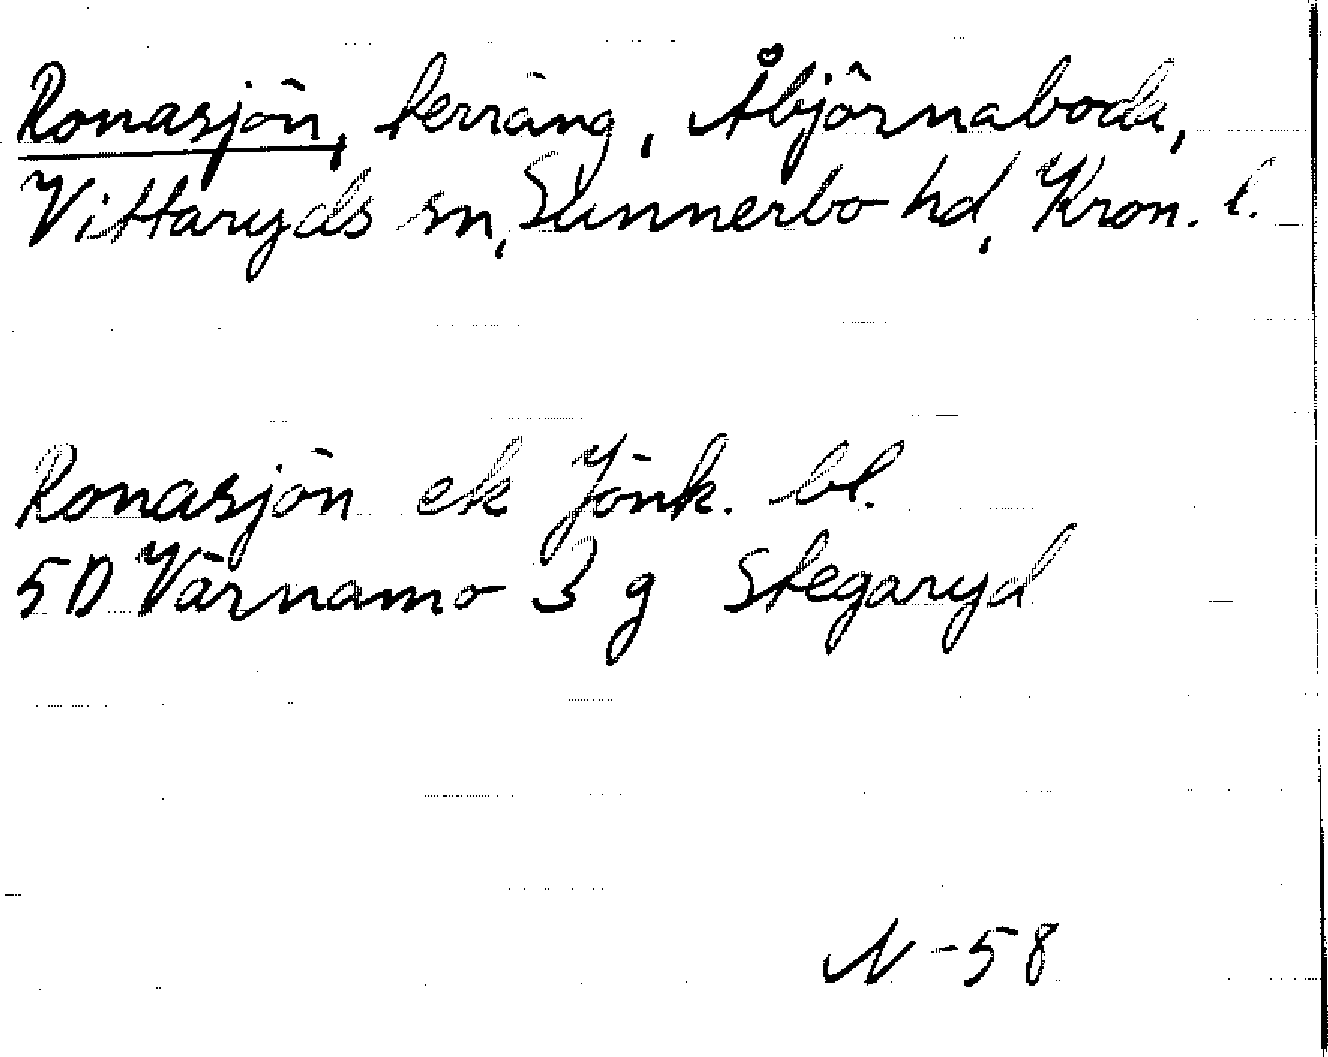 Ronasjön, terräng, Åbjörnaboda,
Vittaryds sn, Sunnerbo hd, Kron. l.
Ronasjön ek Jönk. bl.
5D Värnamo 3 g Stegaryd
N-58